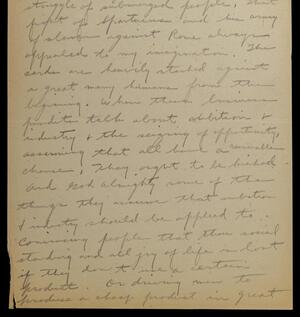 struggle of submerged people, that
part of Spartacus and his army
of slaves against Rome always
appealed to my imagination. The
cards are heavily stacked against
a great many humans from the
beginning. When these business
pundits talk about, ambition &
industry & the seizing of opportunity,
assuming that all have a
chance, they ought to be kicked.
And God Almighty some of the
things they assume that ambition
& industry should be applied to.
Convincing people that their social
standing and all joy of life is lost
if they don't use a certain
product. Or driving men to
produce a cheap product in great